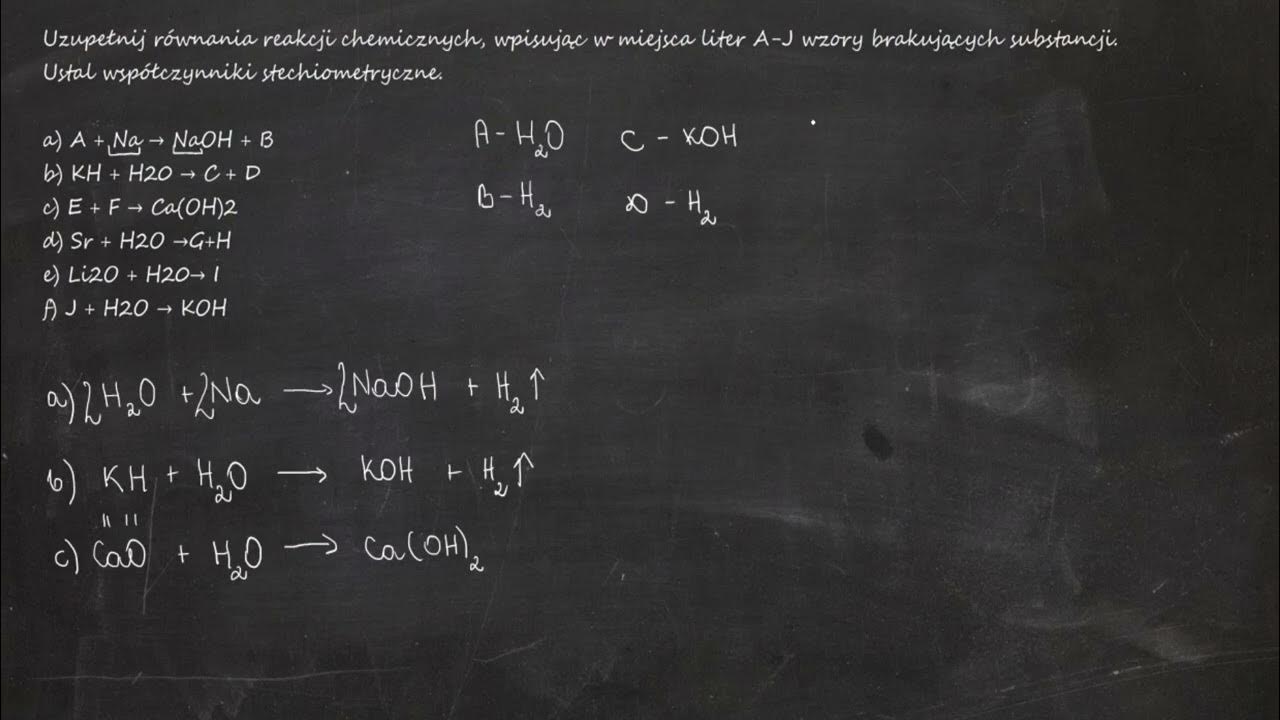 Uzupełnij równania reakcji chemicznych, wpisując w miejsca liter A-J wzory brakujących substancji.
Ustal współczynniki stechiometryczne.
a) A + Na → NaOH + B
b) KH + H2O → C + D
c) E + F → Ca(OH)2
d) Sr + H2O →G+H
e) Li2O + H2O→ I
f) J + H2O → KOH
A - H₂O C - KOH
B - H₂ D - H₂
a) 2H₂O + 2Na → 2NaOH + H₂↑
b) KH + H₂O → KOH + H₂↑
c) CaO + H₂O → Ca(OH)₂